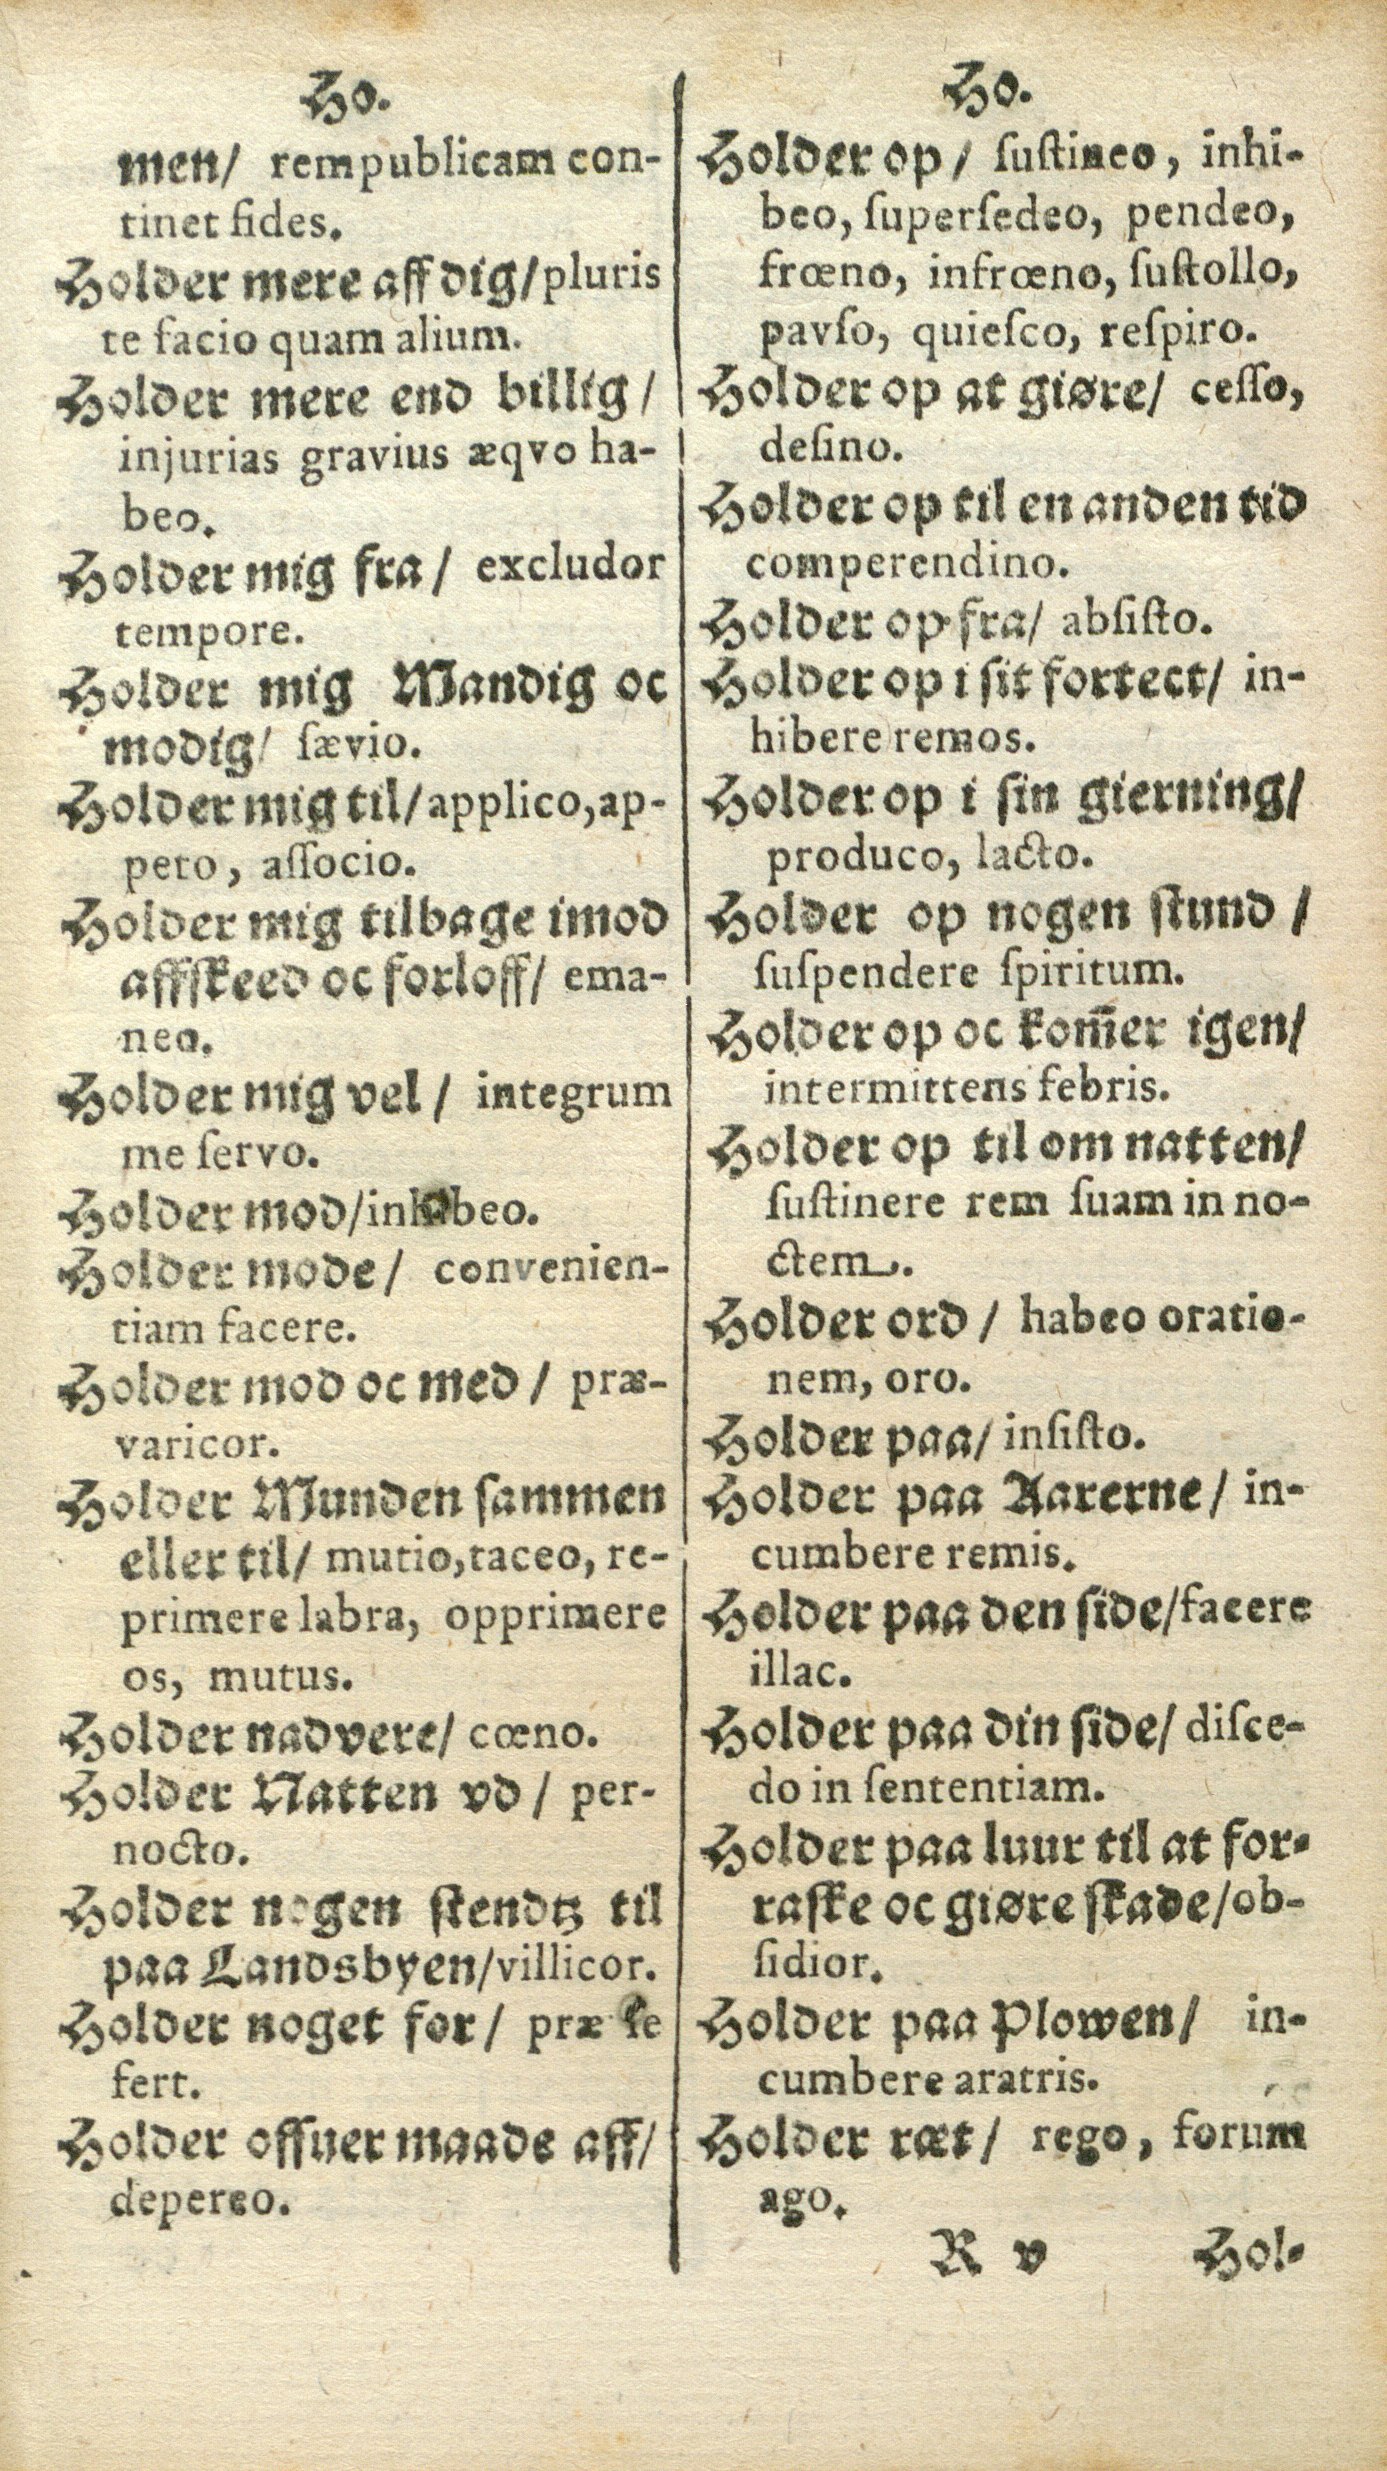 Ho.
men/ rempublicam con-
tinet fides.
Holder mere aff dig/ pluris
te facio quam alium.
Holder mere end billig/
injurias gravius æqvo ha-
beo.
Holder mig fra/ excludor
tempore.
Holder mig Mandig oc
modig/ ſævio.
Holder mig til/ applico, ap-
peto, aſſocio.
Holder mig tilbage imod
affſkeed oc forloff/ ema-
neo.
Holder mig vel/ integrum
me ſervo.
Holder mod/ inhibeo.
Holder mode/ convenien-
tiam facere.
Holder mod oc med/ præ-
varicor.
Holder Munden ſammen
eller til/ mutio, taceo, re-
primere labra, opprimere
os, mutus.
Holder nadvere/ cœno.
Holder Natten vd/ per-
nocto.
Holder nogen ſtendtz til
paa Landsbyen/ villicor.
Holder noget for/ præ ſe
fert.
Holder offuer maade aff/
depereo.
Ho.
Holder op/ ſuſtineo, inhi-
beo, ſuperſedeo, pendeo,
frœno, infrœno, ſuſtollo,
pavſo, quieſco, reſpiro.
Holder op at giøre/ ceſſo,
deſino.
Holder op til en anden tid
comperendino.
Holder op fra/ abſiſto.
Holder op i ſit fortect/ in-
hibere remos.
Holder op i ſin gierning/
produco, lacto.
Holder op nogen ſtund/
ſuſpendere ſpiritum.
Holder op oc kom̃er igen/
intermittens febris.
Holder op til om natten/
ſuſtinere rem ſuam in no-
ctem.
Holder ord/ habeo oratio-
nem, oro.
Holder paa/ inſiſto.
Holder paa Aarerne/ in-
cumbere remis.
Holder paa den ſide/ facere
illac.
Holder paa din ſide/ diſce-
do in ſententiam.
Holder paa luur til at for-
raſke oc giøre ſkade/ ob-
ſidior.
Holder paa Plowen/ in-
cumbere aratris.
Holder ræt/ rego, forum
ago.
R v Hol-